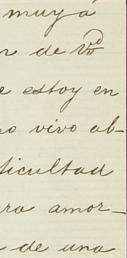 muy á
de vd
estoy en
vivo ab-
ficultad
amor-
de una